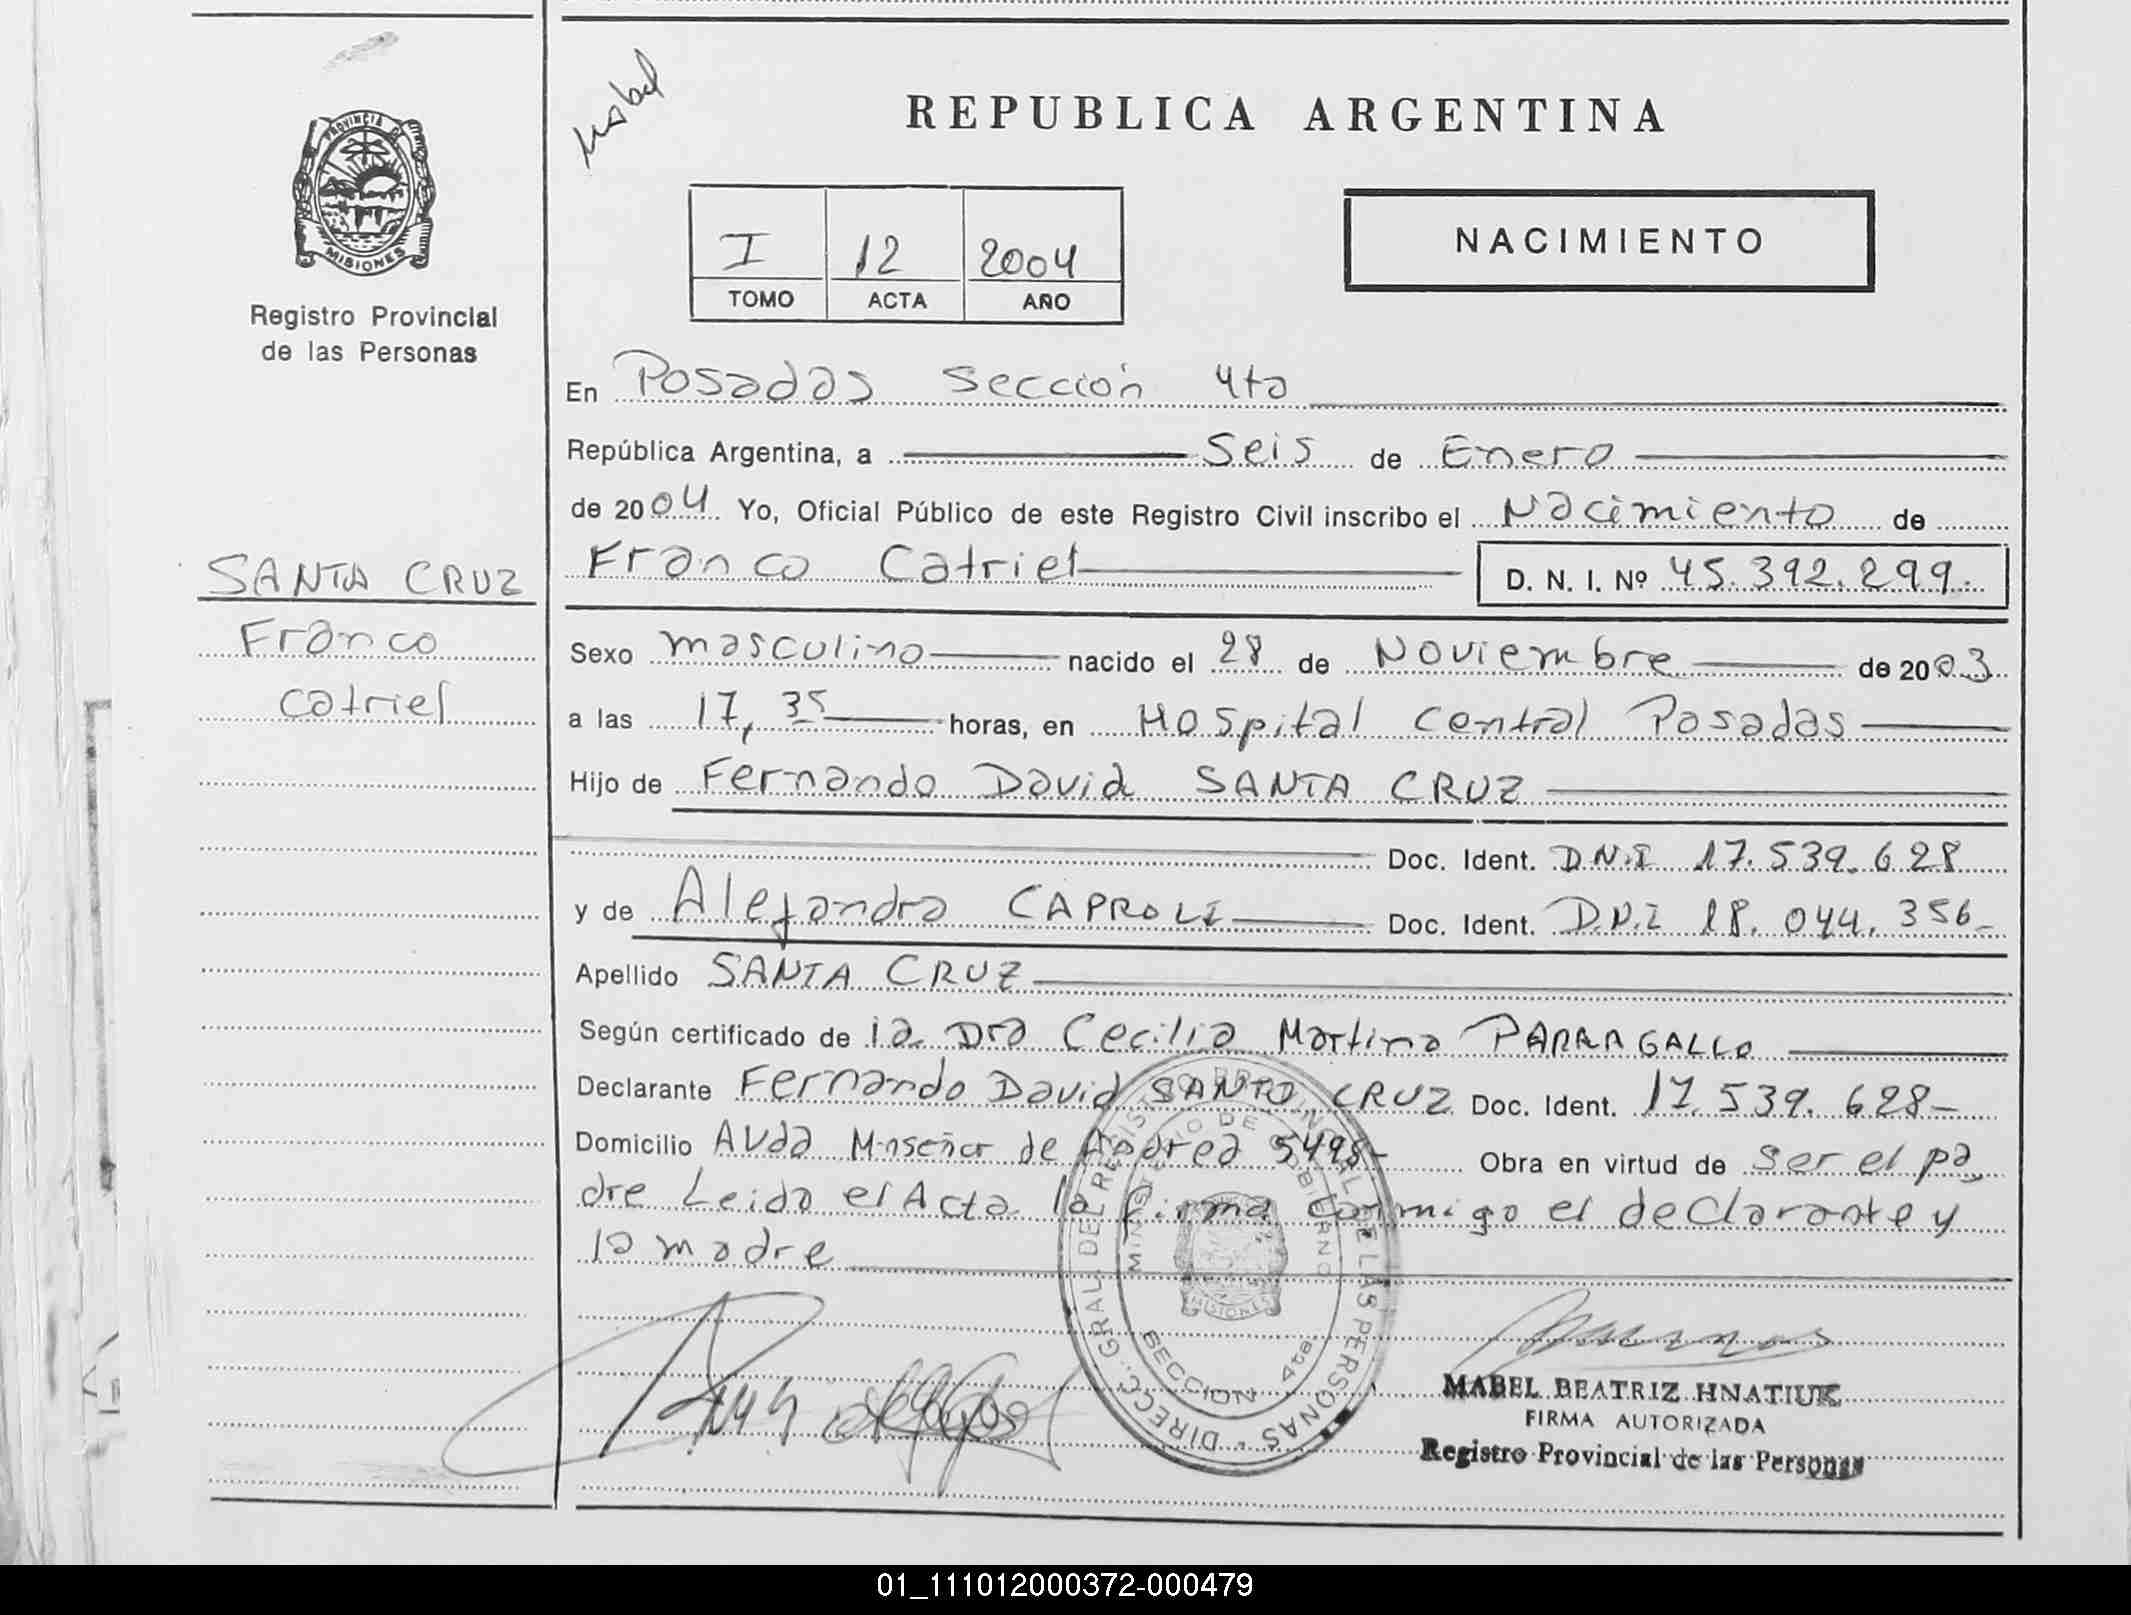 Mabel
REPUBLICA ARGENTINA
PROVINCIA DE
MISIONES
Registro Provincial
de las Personas
I 12 2004
TOMO ACTA AÑO
NACIMIENTO
En Posadas Sección 4ta
República Argentina, a Seis de Enero
de 2004 Yo, Oficial Público de este Registro Civil inscribo el Nacimiento de
Franco Catriel D. N. I. Nº 45.392.299.
SANTA CRUZ
Franco
Catriel
Sexo masculino nacido el 28 de Noviembre de 2003
a las 17,35 horas, en Hospital Central Posadas
Hijo de Fernando David SANTA CRUZ
Doc. Ident. D.N.I 17.539.628
y de Alejandra CAPROLI Doc. Ident. D.N.I 18.044.356-
Apellido SANTA CRUZ
Según certificado de la Dra Cecilia Martina PARRAGALLO
Declarante Fernando David SANTA CRUZ Doc. Ident. 17.539.628-
Domicilio Avda Monseñor de Andrea 5498- Obra en virtud de ser el pa
dre Leido el Acta la firma conmigo el declarante y
la madre
DIRECC. GRAL. DEL REGISTRO PROVINCIAL DE LAS PERSONAS
MINISTERIO DE GOBIERNO
MISIONES
SECCION 4ta
MABEL BEATRIZ HNATIUK
FIRMA AUTORIZADA
Registro Provincial de las Personas
01_111012000372-000479